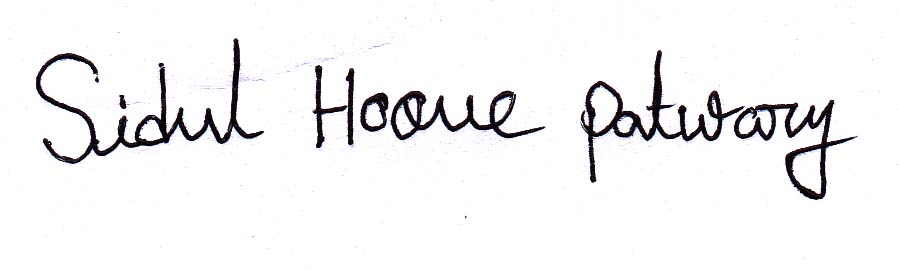 Sidul Hoque patwary